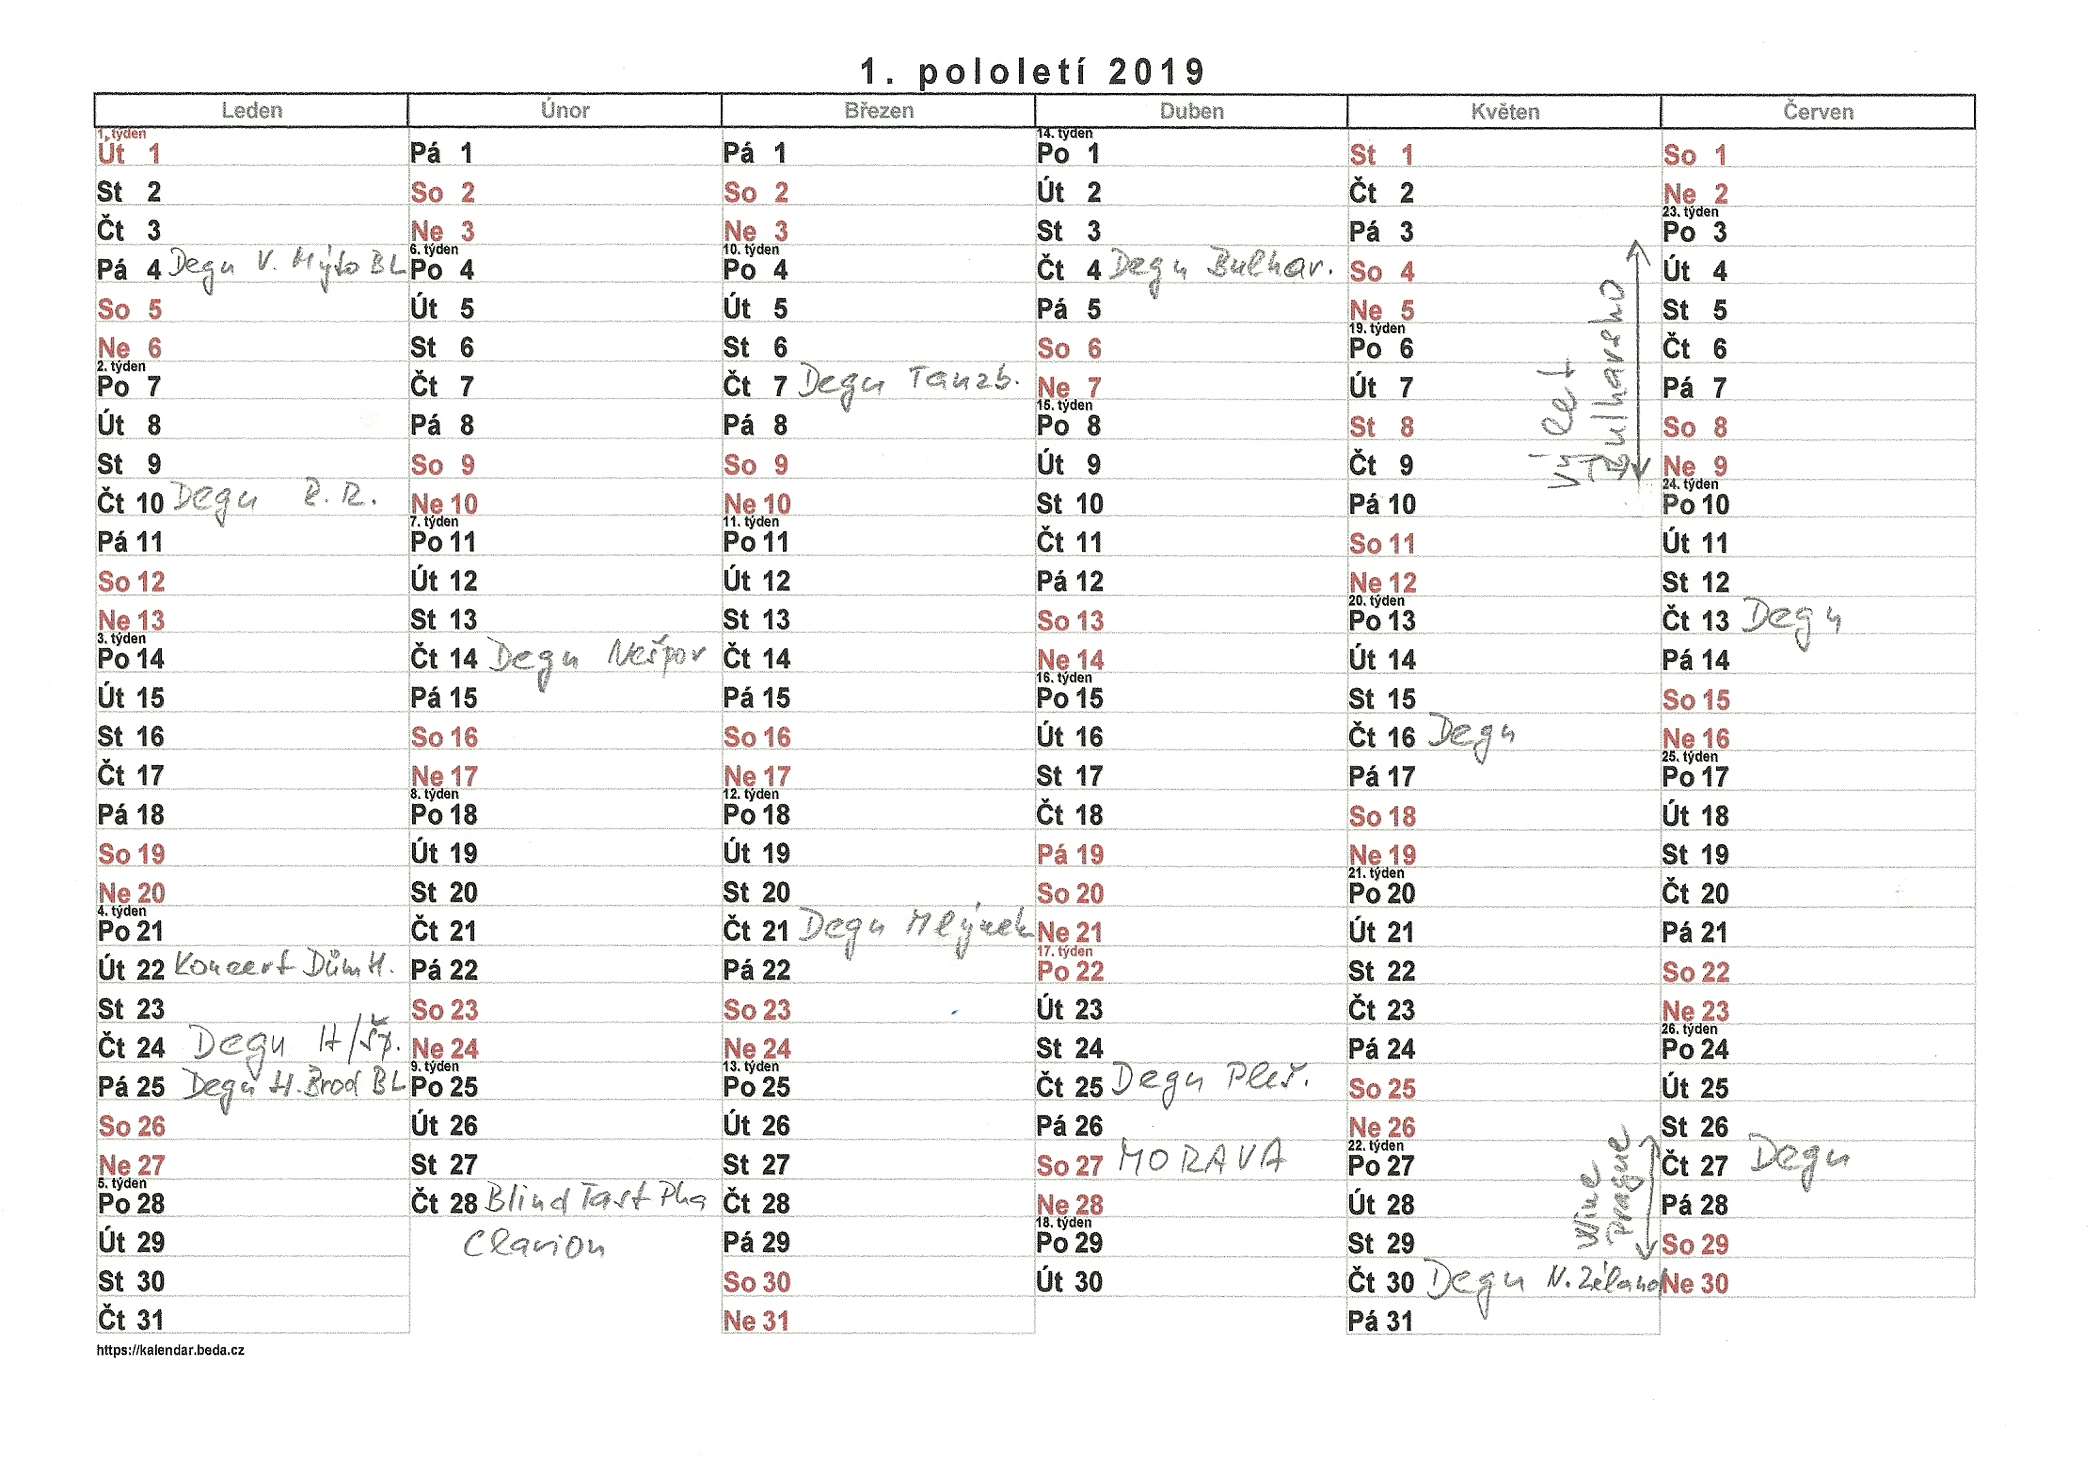 1. pololetí 2019
Leden Únor Březen Duben Květen Červen
1. týden 14. týden
Út 1 Pá 1 Pá 1 Po 1 St 1 So 1
St 2 So 2 So 2 Út 2 Čt 2 Ne 2
23. týden
Čt 3 Ne 3 Ne 3 St 3 Pá 3 Po 3
6. týden 10. týden
Pá 4 Degu V. Mýto BL Po 4 Po 4 Čt 4 Degu Bulhar. So 4 Út 4
So 5 Út 5 Út 5 Pá 5 Ne 5 St 5
19. týden
Ne 6 St 6 St 6 So 6 Po 6 Čt 6
2. týden
Po 7 Čt 7 Čt 7 Degu Tanzb. Ne 7 Út 7 Pá 7
15. týden
Út 8 Pá 8 Pá 8 Po 8 St 8 So 8
St 9 So 9 So 9 Út 9 Čt 9 Ne 9
Výlet
Bulharsko
24. týden
Čt 10 Degu R. R. Ne 10 Ne 10 St 10 Pá 10 Po 10
7. týden 11. týden
Pá 11 Po 11 Po 11 Čt 11 So 11 Út 11
So 12 Út 12 Út 12 Pá 12 Ne 12 St 12
20. týden
Ne 13 St 13 St 13 So 13 Po 13 Čt 13 Degu
3. týden
Po 14 Čt 14 Degu Nešpor Čt 14 Ne 14 Út 14 Pá 14
16. týden
Út 15 Pá 15 Pá 15 Po 15 St 15 So 15
St 16 So 16 So 16 Út 16 Čt 16 Degu Ne 16
25. týden
Čt 17 Ne 17 Ne 17 St 17 Pá 17 Po 17
8. týden 12. týden
Pá 18 Po 18 Po 18 Čt 18 So 18 Út 18
So 19 Út 19 Út 19 Pá 19 Ne 19 St 19
21. týden
Ne 20 St 20 St 20 So 20 Po 20 Čt 20
4. týden
Po 21 Čt 21 Čt 21 Degu Mlýnek Ne 21 Út 21 Pá 21
17. týden
Út 22 Koncert Dům H. Pá 22 Pá 22 Po 22 St 22 So 22
St 23 So 23 So 23 Út 23 Čt 23 Ne 23
26. týden
Čt 24 Degu H/Šp. Ne 24 Ne 24 St 24 Pá 24 Po 24
9. týden 13. týden
Pá 25 Degu H. Brod BL Po 25 Po 25 Čt 25 Degu Pleš. So 25 Út 25
So 26 Út 26 Út 26 Pá 26 Ne 26 St 26
22. týden
Ne 27 St 27 St 27 So 27 MORAVA Po 27 Čt 27 Degu
5. týden
Po 28 Čt 28 Blind Tast Pha Čt 28 Ne 28 Út 28 Pá 28
Wine
Prague
18. týden
Út 29 Clarion Pá 29 Po 29 St 29 So 29
St 30 So 30 Út 30 Čt 30 Degu N. Zéland Ne 30
Čt 31 Ne 31 Pá 31
https://kalendar.beda.cz